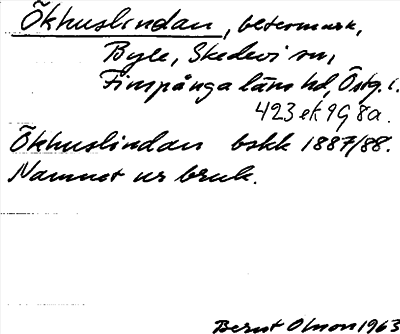 Ökhuslindan, betesmark,
Byle, Skedevi sn,
Finspånga läns hd, Östg. l.
423 ek 9G 8a.
Ökhuslindan bskk 1887/88.
Namnet ur bruk.
Bernt Olsson 1963